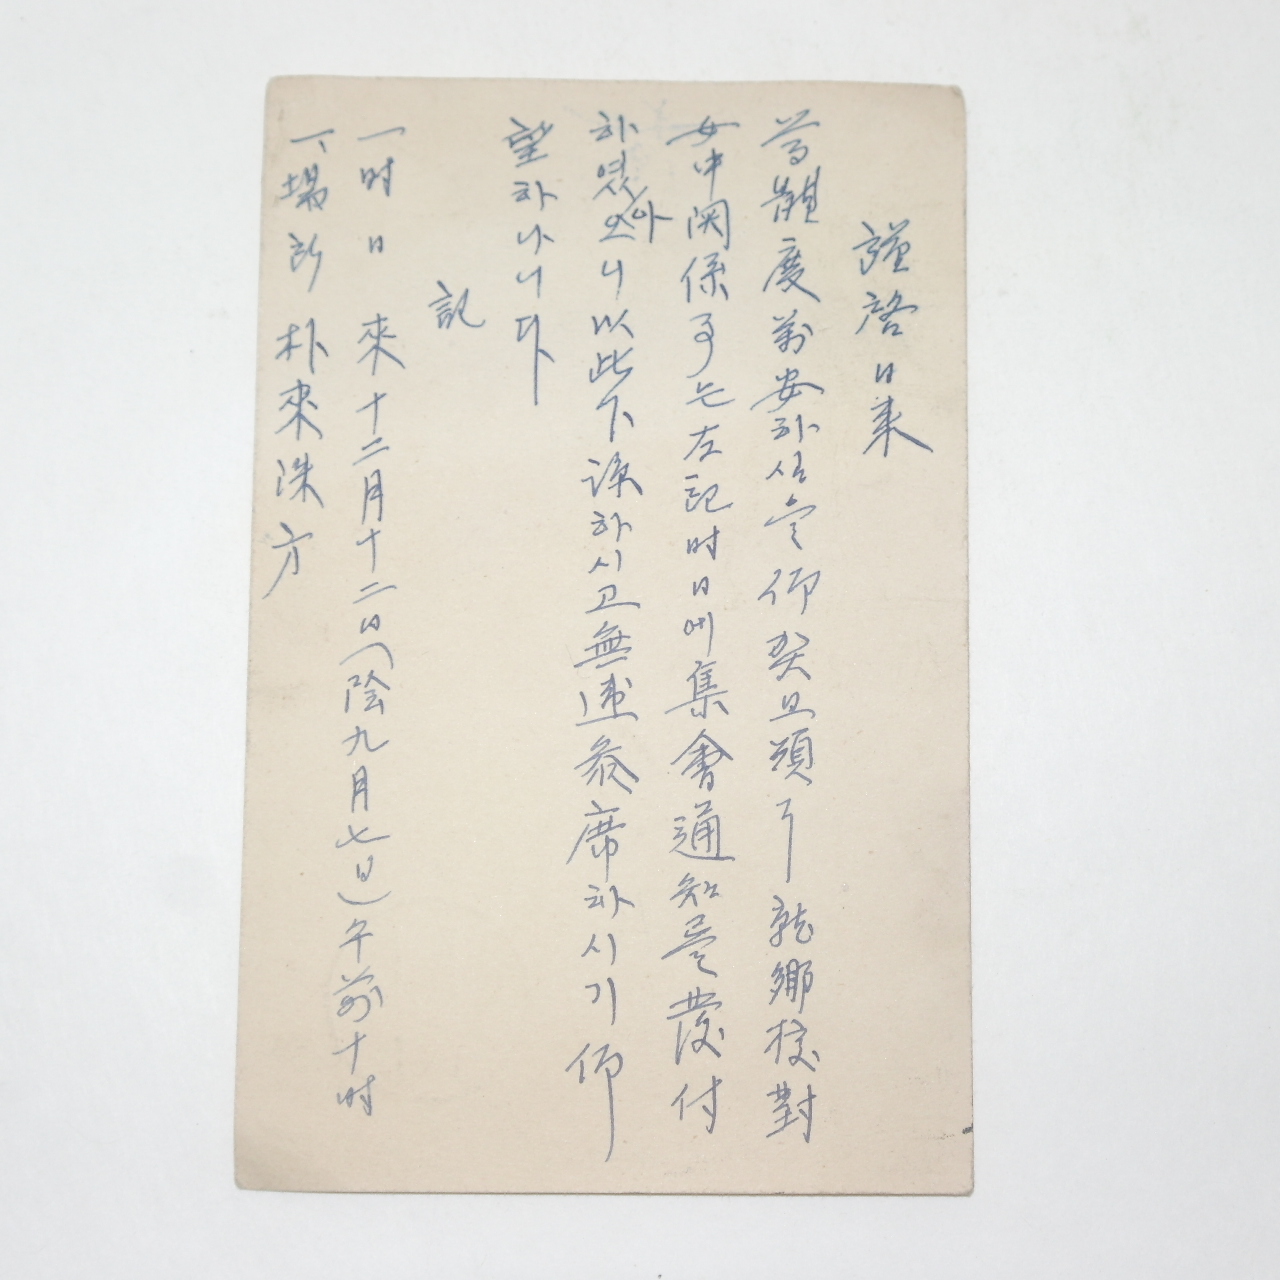 謹啓日來
尊體度萬安하심을仰癸且頌了 就鄕校對
女中関係事는左記時日에集會通知를發付
하였아오니以此下諒하시고無違參席하시기仰
望하나니다
記
一時日 來十二月十二日(陰九月七日)午前十時
一、場所 朴來洙方